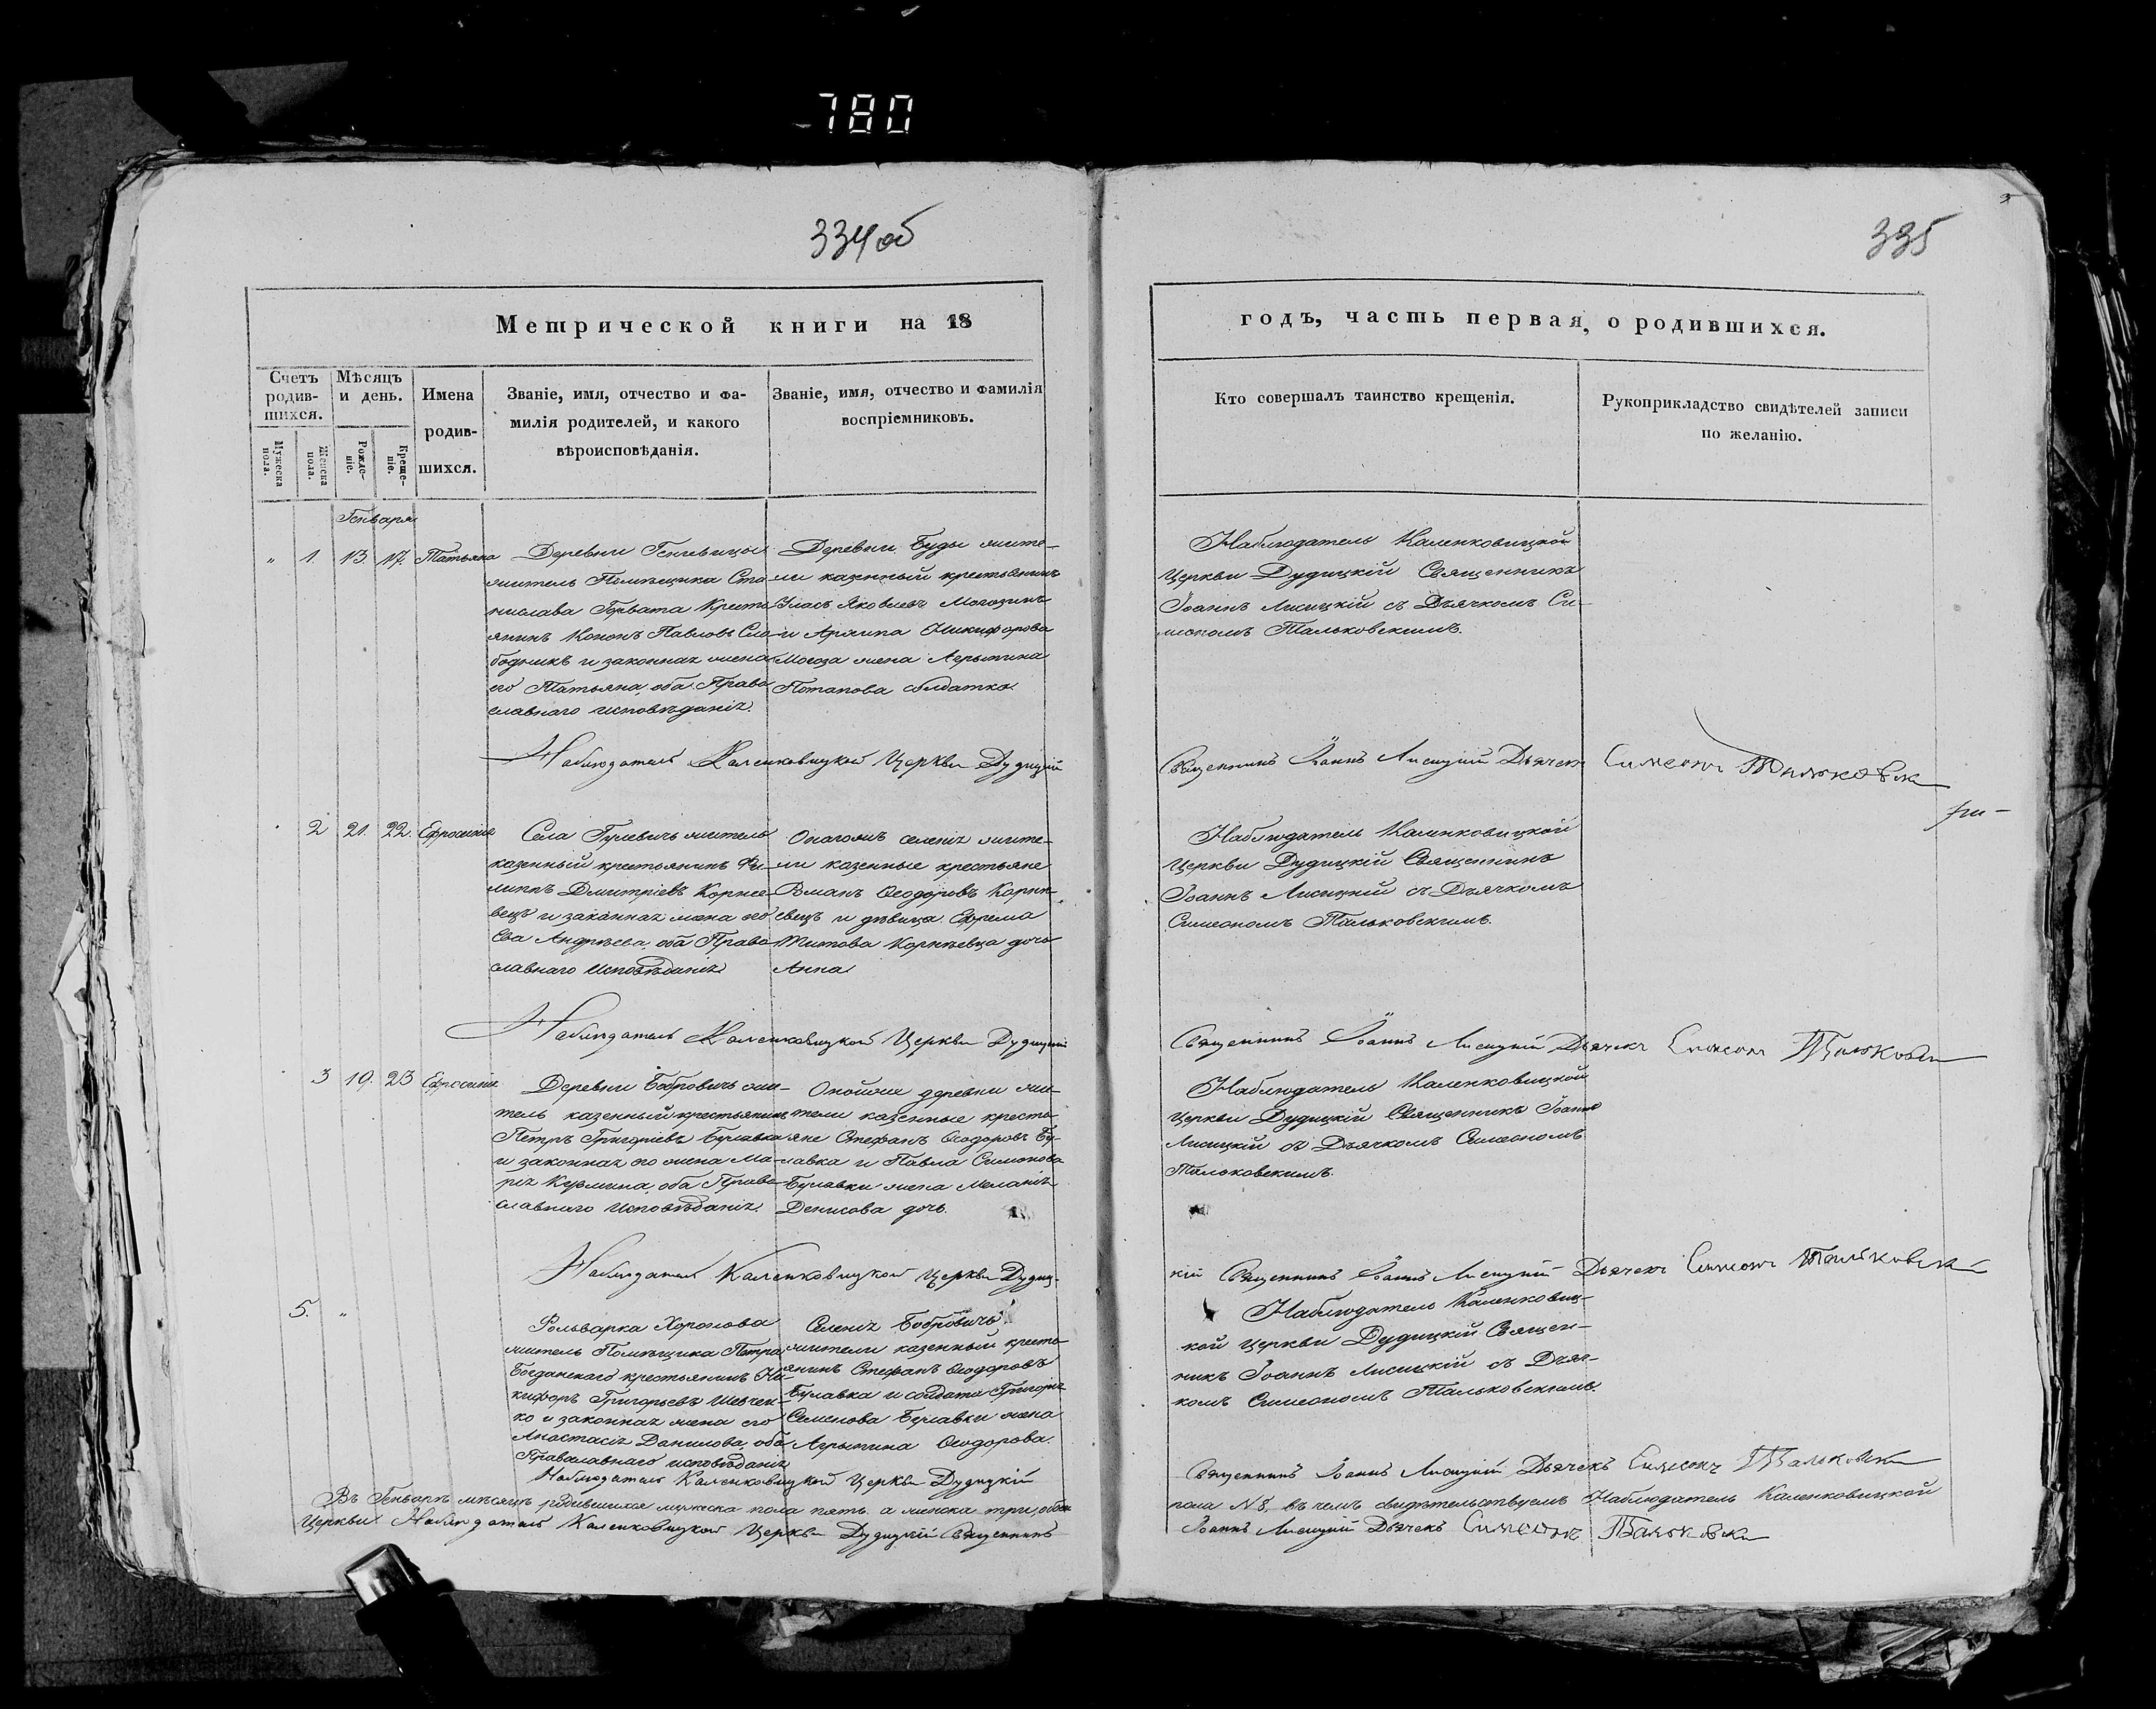 780
334 об
335
Метрической книги на 18
годъ, часть первая, о родившихся.
Счетъ родив-шихся.
Мѣсяцъ и день.
Имена родив-шихся.
Званіе, имя, отчество и фа-
милія родителей, и какого
вѣроисповѣданія.
Званіе, имя, отчество и фамилія
воспріемниковъ.
Кто совершалъ таинство крещенія.
Рукоприкладство свидѣтелей записи
по желанію.
Мужеска пола.
Женска пола.
Рожде-ніе.
Креще-ніе.
Генваря
" 1. 13. 17. Татьяна
Деревни
житель Помѣщика Ста-
нислава Горвата Крестья-
янинъ Кононъ Павловъ Сло-
бодникъ и законная жена
его Татьяна, оба Право-
славнаго исповѣданія.
Деревни Буды жите-
ли казенный крестьянинъ
Власъ Яковлевъ
и Никифорова
жена Агрыпина
Потапова солдатка.
Наблюдатель Каленковицкой
Церкви Дудицкій Священникъ
Іоаннъ Лисицкій съ Дьячкомъ Си-
меономъ Тальковскимъ.
Наблюдатель Каленковицкой Церкви Дудицкій
Священникъ Іоаннъ Лисицкій Дьячекъ Симеонъ Тальковскі
2 21. 22. Ефросинія
Села Гулевичъ житель
казенный крестьянинъ Фи-
липпъ Дмитріевъ Корнее-
вецъ и законная жена его
Ева Андреева, оба Право-
славнаго Исповѣданія
Онагожъ селенія жите-
ли казенные крестьяне
Романъ Ѳеодоровъ Корне-
евецъ и дѣвица Ефрема
Титова Корнѣевца дочь
Анна
Наблюдатель Каленковицкой
Церкви Дудицкій Священникъ
Іоаннъ Лисицкій съ Дьячкомъ
Симеономъ Тальковскимъ.
Наблюдатель Каленковицкой Церкви Дудицкій
Священникъ Іоаннъ Лисицкій Дьячекъ Симеонъ Тальковскі
3 19. 23 Ефросинія
Деревни Бобровичъ жи-
тель казенный крестьянинъ
Петръ Григоріевъ Булавка
и законная его жена Ма-
рія, оба Право-
славнаго Исповѣданія.
Онойже деревни жи-
тели казенные кресть-
яне Стефанъ Ѳеодоровъ Бу-
лавка и Павла Симонова
Булавки жена Меланія
Денисова дочь.
Наблюдатель Каленковицкой
Церкви Дудицкій Священникъ Іоаннъ
Лисицкій съ Дьячкомъ Симеономъ
Тальковскимъ.
Наблюдатель Каленковицкой Церкви Дудиц-
кій Священникъ Іоаннъ Лисицкій Дьячекъ Симеонъ Тальковскі
5. "
Фольварка Хоромова
житель Помѣщика Петра
Богданскаго крестьянинъ Ни-
кифоръ Григорьевъ Шевчен-
ко и законная жена его
Анастасія Данилова, оба
Православнаго исповѣданія
Селенія Бобровичъ
жители казенный кресть-
янинъ Стефанъ Ѳеодоровъ
Булавка и солдата Григорія
Семенова Булавки жена
Агрыпина Ѳеодорова.
Наблюдатель Каленковиц-
кой Церкви Дудицкій Священ-
никъ Іоаннъ Лисицкій съ Дьяч-
комъ Симеономъ Тальковскимъ.
Наблюдатель Каленковицкой Церкви Дудицкій
Священникъ Іоаннъ Лисицкій Дьячекъ Симеонъ Тальковскі
Въ Генварѣ мѣсяцѣ родившихся мужеска пола пять, а женска три, обоего
пола N 8, въ чемъ свидѣтельствуемъ Наблюдатель Каленковицкой
Церкви. Наблюдатель Каленковицкой Церкви Дудицкій Священникъ
Іоаннъ Лисицкій Дьячекъ Симеонъ Тальковскі